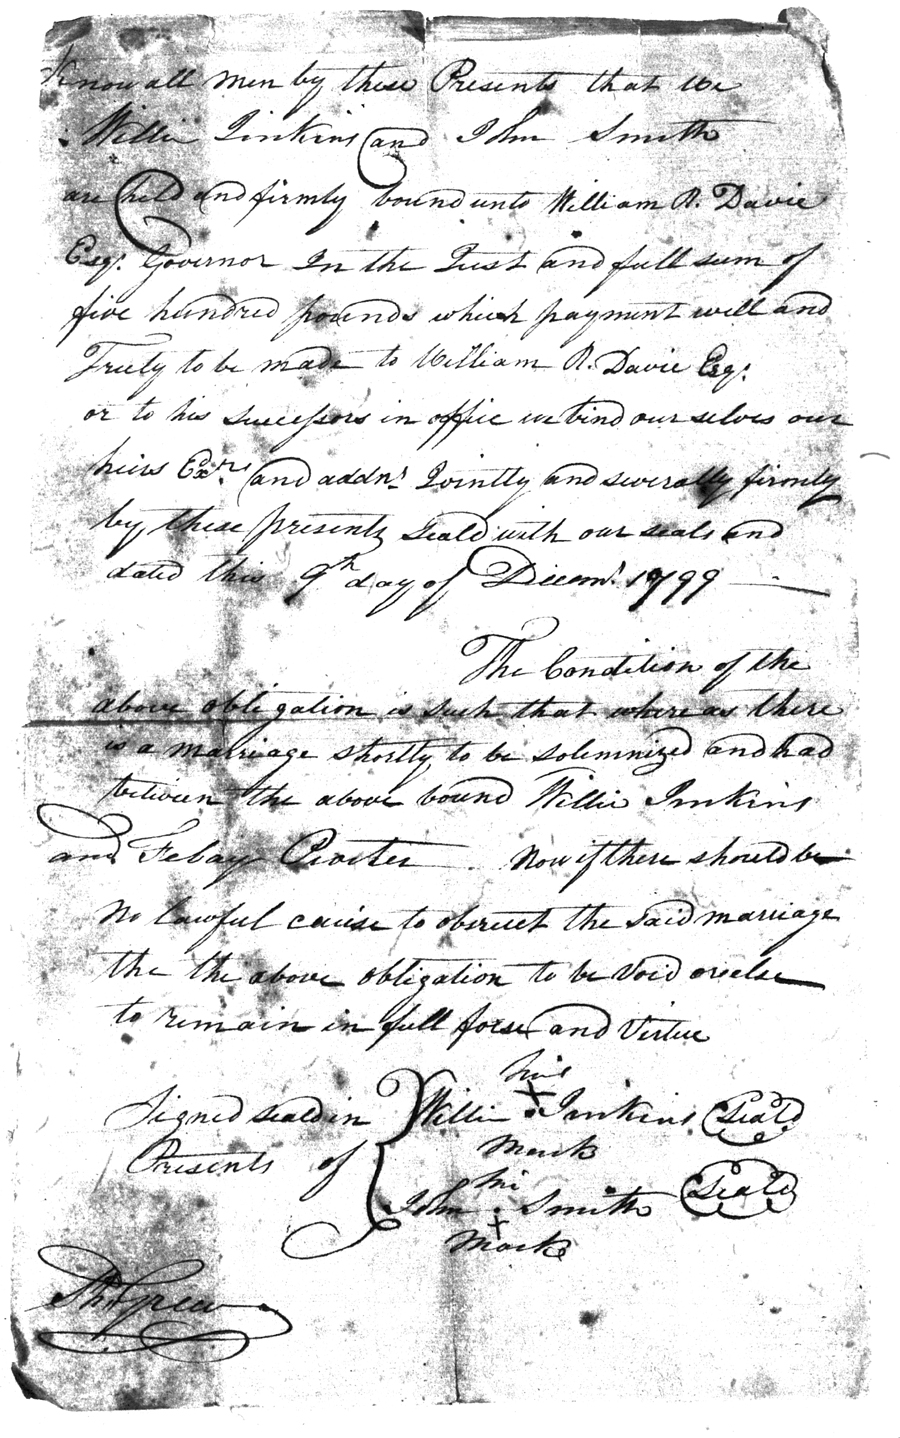 Know all men by these Presents that we
Willie Jinkins and John Smith
are held and firmly bound unto William R. Davie
Esqr. Governor In the Just and full sum of
five hundred pounds which payment will and
Truely to be made to William R. Davie Esqr.
or to his successors in office we bind our selves our
heirs Exrs. and addnr. Jointly and severally firmly
by these presents Seald with our seals and
dated this 9th day of Decemr. 1799
The Condition of the
above obligation is such that where as there
is a marriage shortly to be solemnized and had
between the above bound Willie Jinkins
and Febay Now if there should be
No lawful cause to obstruct the said marriage
the the above obligation to be Void or else
to remain in full force and Virtue
his
Signed seald in Willie X Jinkins Seald
Presents of mark
his
John X Smith Seald
mark